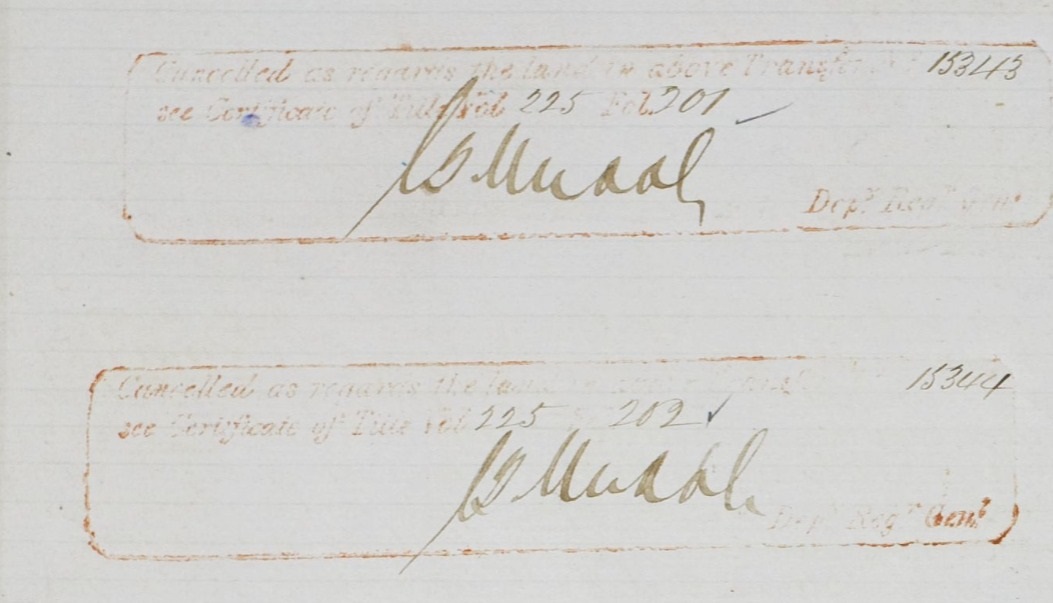 Cancelled as regards the land in above Transfer 15343
see Certificate of Title Vol 225 Fol. 201
Dep.y Reg.r Gen.l
Cancelled as regards the land in above Transf 15344
see Certificate of Title Vol 225 202
Dep.y Reg.r Gen.l